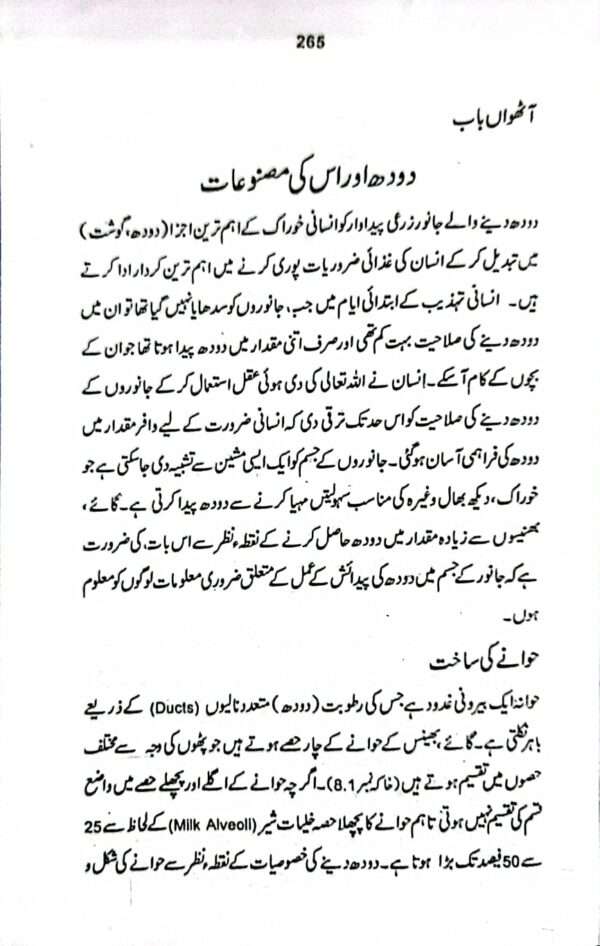 265
آٹھواں باب
دودھ اور اس کی مصنوعات
دودھ دینے والے جانور زرعی پیداوار کو انسانی خوراک کے اہم ترین اجزا (دودھ، گوشت)
میں تبدیل کر کے انسان کی غذائی ضروریات پوری کرنے میں اہم ترین کردار ادا کرتے
ہیں۔ انسانی تہذیب کے ابتدائی ایام میں جب، جانوروں کو سدھایا نہیں گیا تھا تو ان میں
دودھ دینے کی صلاحیت بہت کم تھی اور صرف اتنی مقدار میں دودھ پیدا ہوتا تھا جو ان کے
بچوں کے کام آ سکے۔ انسان نے اللہ تعالی کی دی ہوئی عقل استعمال کر کے جانوروں کے
دودھ دینے کی صلاحیت کو اس حد تک ترقی دی کہ انسانی ضرورت کے لیے وافر مقدار میں
دودھ کی فراہمی آسان ہو گئی۔ جانوروں کے جسم کو ایک ایسی مشین سے تشبیہ دی جا سکتی ہے جو
خوراک، دیکھ بھال وغیرہ کی مناسب سہولیتں مہیا کرنے سے دودھ پیدا کرتی ہے۔ گائے،
بھنیسوں سے زیادہ مقدار میں دودھ حاصل کرنے کے نقطہء نظر سے اس بات، کی ضرورت
ہے کہ جانور کے جسم میں دودھ کی پیدائش کے عمل کے متعلق ضروری معلومات لوگوں کو معلوم
ہوں۔
حوانے کی ساخت
حوانہ ایک بیرونی غدود ہے جس کی رطوبت (دودھ) متعدد نالیوں (Ducts) کے ذریعے
باہر نکلتی ہے۔ گائے، بھینس کے حوانے کے چار حصے ہوتے ہیں جو پٹھوں کی وجہ سے مختلف
حصوں میں تقسیم ہوتے ہیں (خاکہ نمبر 8.1)۔ اگرچہ حوانے کے اگلے اور پچھلے حصے میں واضع
قسم کی تقسیم نہیں ہوتی تاہم حوانے کا پچھلا حصہ خلیات شیر (Milk Alveoli) کے لحاظ سے 25
سے 50 فیصد تک بڑا ہوتا ہے۔ دودھ دینے کی خصوصیات کے نقطہء نظر سے حوانے کی شکل و